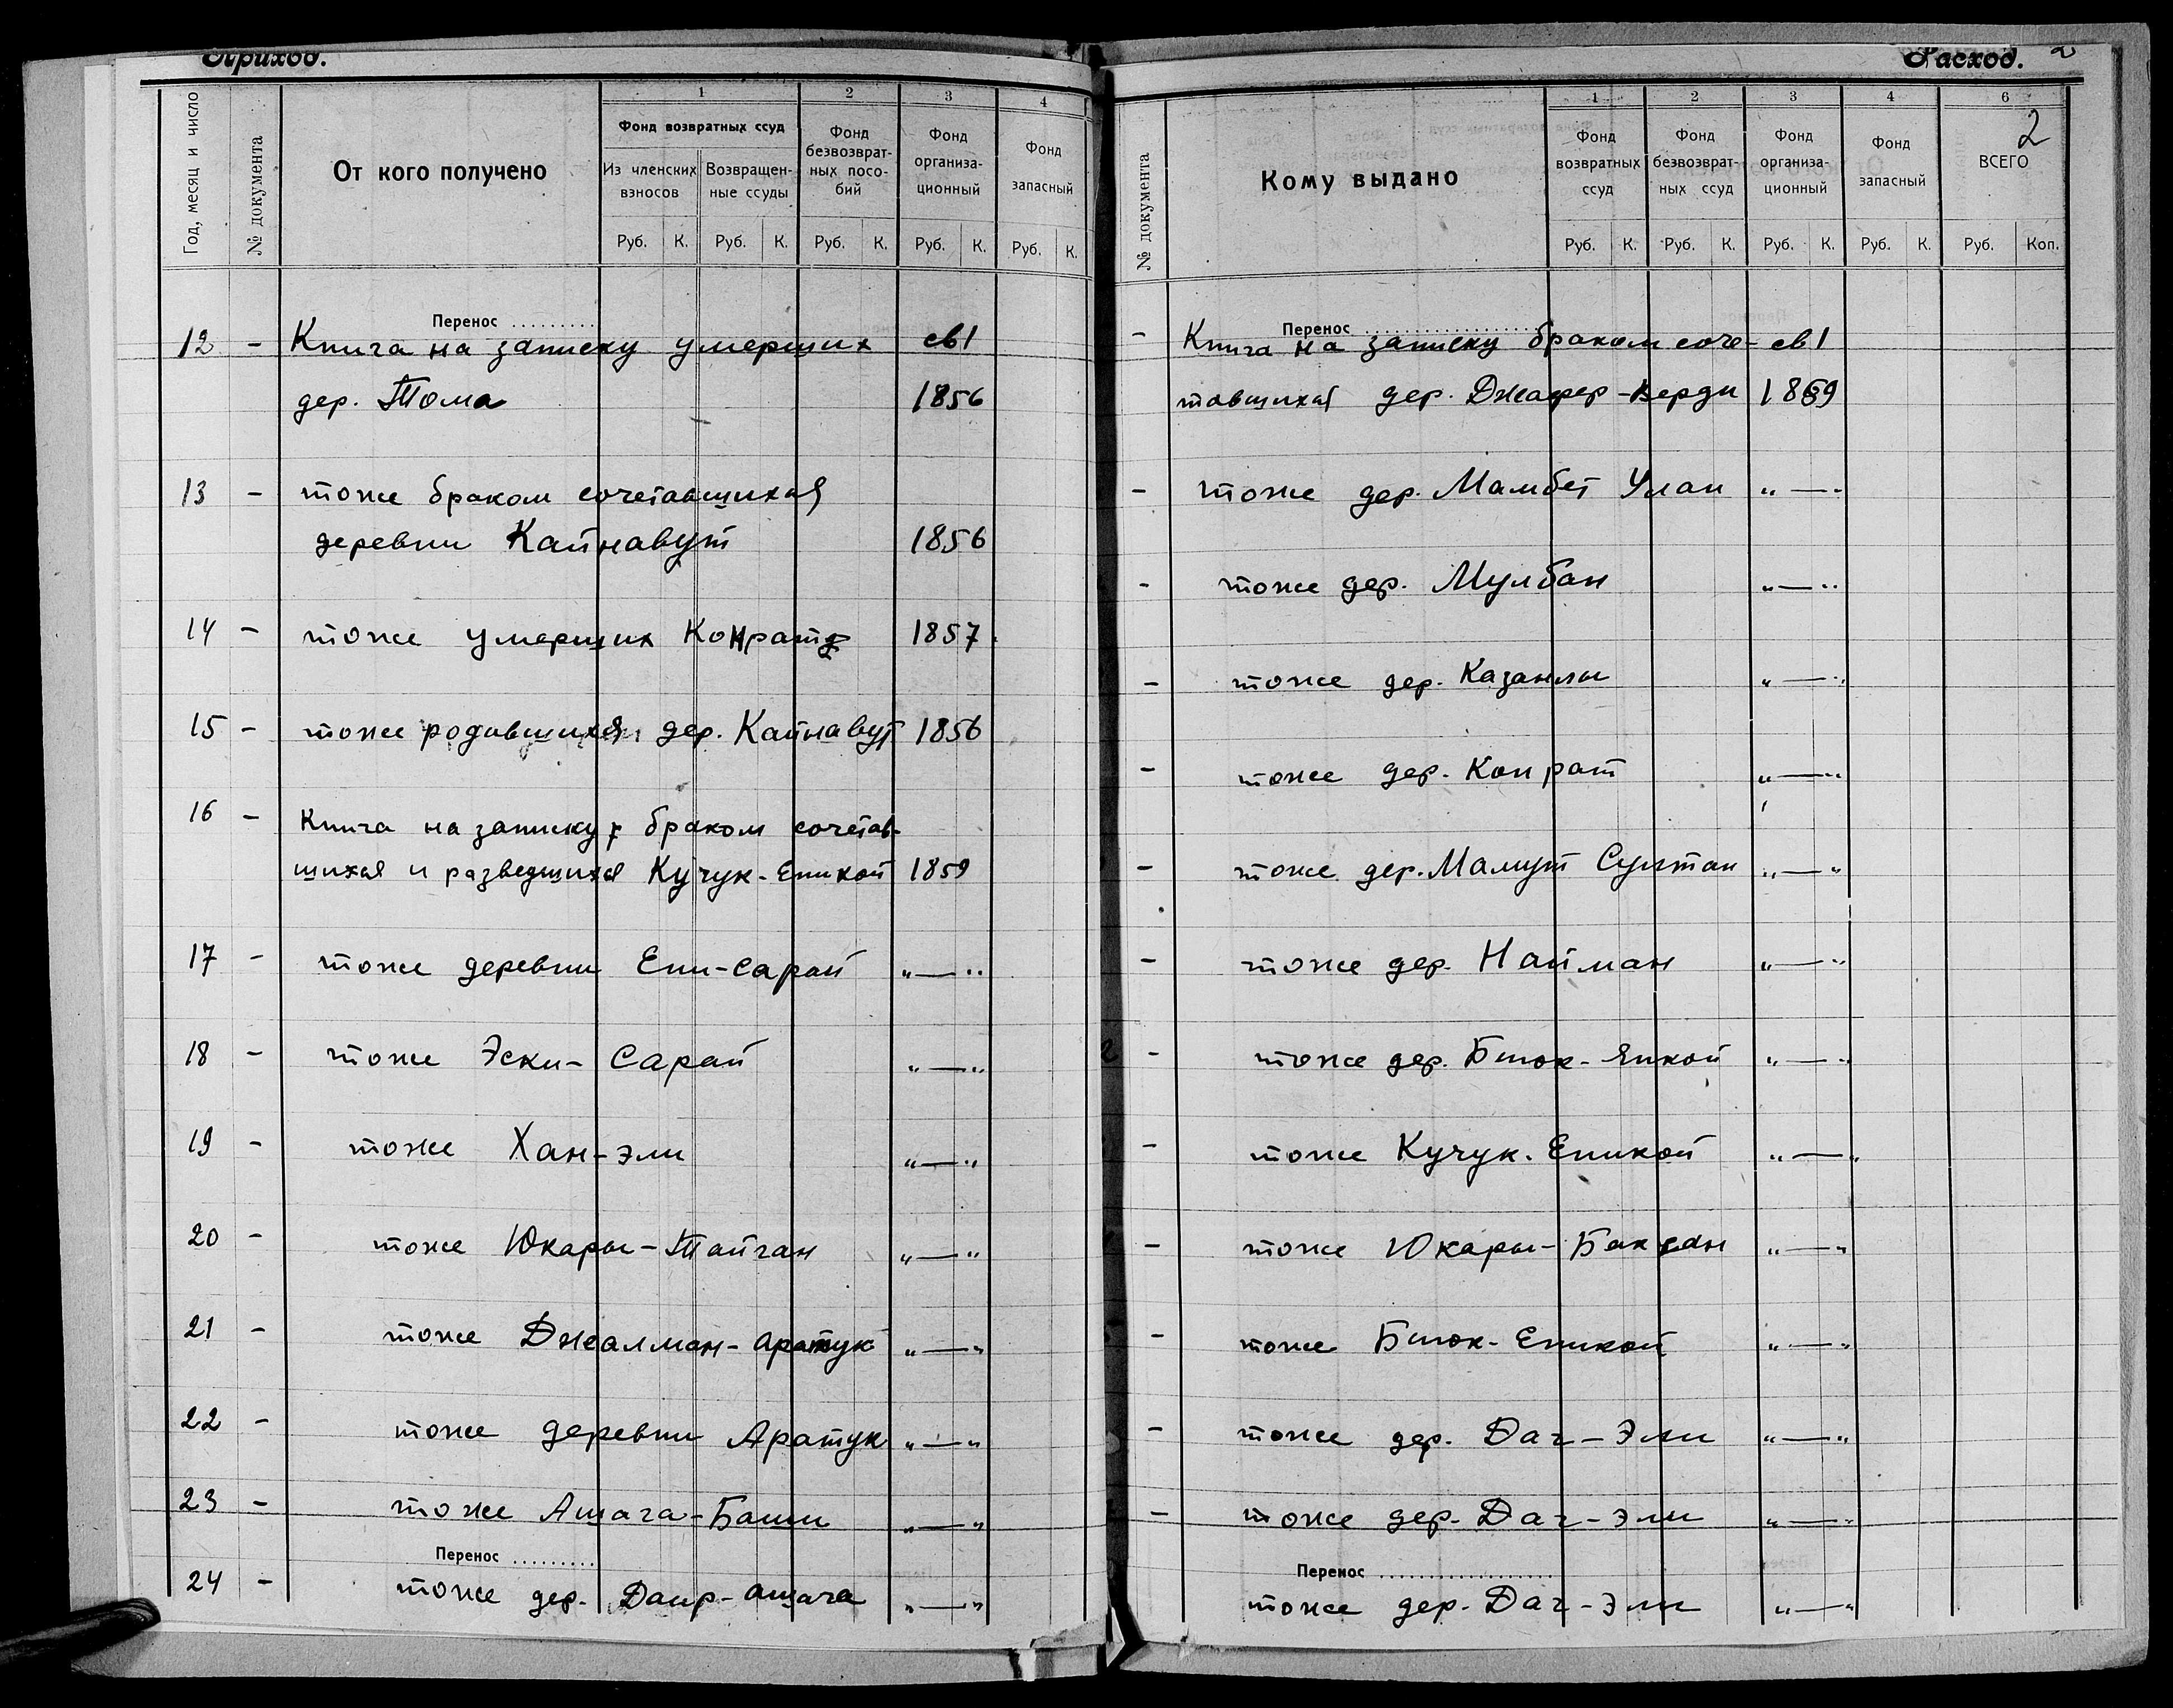 Приход.
Год, месяц и число
№ документа
От кого получено
1
Фонд возвратных ссуд
Из членских взносов
Возвращен-ные ссуды
2
Фонд безвозврат-ных посо-бий
3
Фонд организа-ционный
4
Фонд запасный
Руб. К. Руб. К. Руб. К. Руб. К. Руб. К.
Перенос .........
12 - Книга на записку умерших св1
дер. Тома 1856
13 - тоже браком сочетавшихся
деревни Кайнавут 1856
14 - тоже умерших Конрат 1857
15 - тоже родившихся дер. Кайнавут 1856
16 - Книга на записку браком сочетав-
шихся и разведшихся Кучук-Еникой 1859
17 - тоже деревни Ени-Сарай „—“
18 - тоже Эски-Сарай „—“
19 - тоже Хан-эли „—“
20 - тоже Юкары-Тайган „—“
21 - тоже Джалман-аратук „—“
22 - тоже деревни Аратук „—“
23 - тоже Ашага-Баши „—“
Перенос .........
24 - тоже дер. Даир-ашага „—“
Расход. 2
2
№ документа
Кому выдано
1
Фонд возвратных ссуд
2
Фонд безвозврат-ных ссуд
3
Фонд организа-ционный
4
Фонд запасный
6
ВСЕГО
Руб. К. Руб. К. Руб. К. Руб. К. Руб. Коп.
Перенос ...................
- Книга на записку браком соче- св1
тавшихся дер. Джафер-Верди 1859
- тоже дер. Мамбет Улан „—“
- тоже дер. Мулбан „—“
- тоже дер. Казанлы „—“
- тоже дер. Конрат „—“
- тоже дер. Мамут Султан „—“
- тоже дер. Найман „—“
- тоже дер. Биюк-Янкой „—“
- тоже Кучук-Еникой „—“
- тоже Юкары-Баксан „—“
- тоже Биюк-Еникой „—“
- тоже дер. Даг-Эли „—“
- тоже дер. Даг-эли „—“
Перенос ...................
тоже дер. Даг-эли „—“